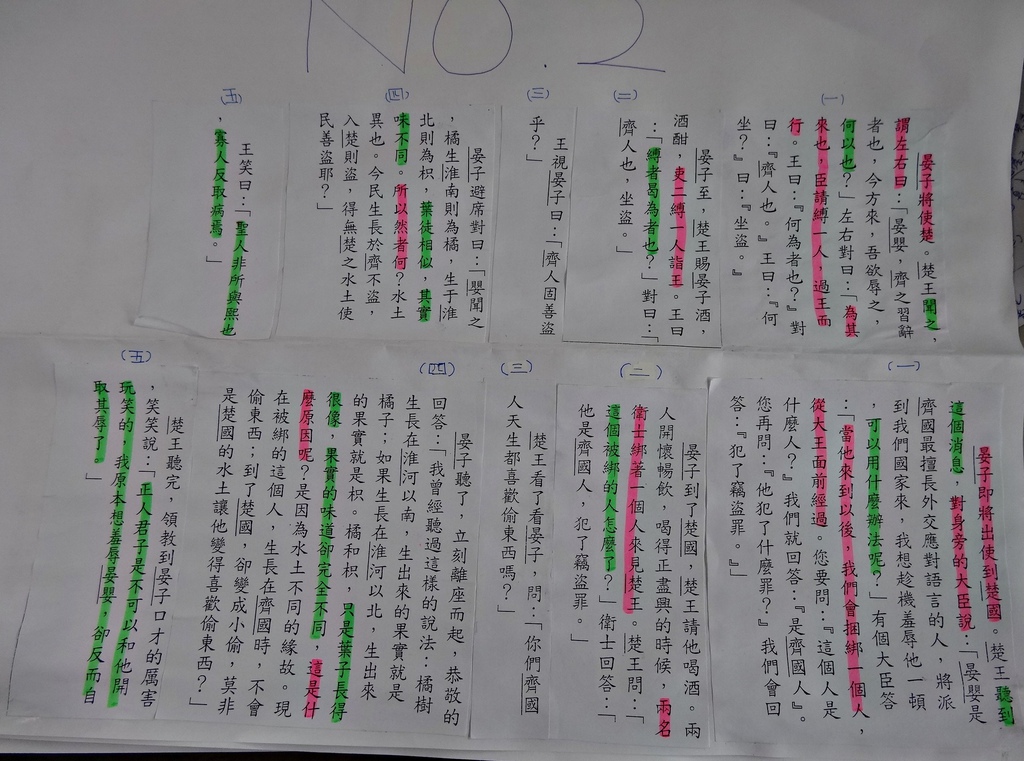 NO.2
(一)
晏子將使楚。楚王聞之，
謂左右曰：「晏嬰，齊之習辭
者也，今方來，吾欲辱之，
何以也？」左右對曰：「為其
來也，臣請縛一人，過王而
行。王曰：『何為者也？』對
曰：『齊人也。』王曰：『何
坐？』曰：『坐盜。』
(二)
晏子至，楚王賜晏子酒，
酒酣，吏二縛一人詣王。王曰
：「縛者曷為者也？」對曰：「
齊人也，坐盜。」
(三)
王視晏子曰：「齊人固善盜
乎？」
(四)
晏子避席對曰：「嬰聞之
，橘生淮南則為橘，生于淮
北則為枳，葉徒相似，其實
味不同。所以然者何？水土
異也。今民生長於齊不盜，
入楚則盜，得無楚之水土使
民善盜耶？」
(五)
王笑曰：「聖人非所與熙也
，寡人反取病焉。」
(一)
晏子即將出使到楚國。楚王聽到
這個消息，對身旁的大臣說：「晏嬰是
齊國最擅長外交應對語言的人，將派
到我們國家來，我想趁機羞辱他一頓
，可以用什麼辦法呢？」有個大臣答
：「當他來到以後，我們會捆綁一個人，
從大王面前經過。您要問：『這個人是
什麼人？』我們就回答：『是齊國人』。
您再問：『他犯了什麼罪？』我們會回
答：『犯了竊盜罪。』」
(二)
晏子到了楚國，楚王請他喝酒。兩
人開懷暢飲，喝得正盡興的時候，兩名
衛士綁著一個人來見楚王。楚王問：「
這個被綁的人怎麼了？」衛士回答：「
他是齊國人，犯了竊盜罪。」
(三)
楚王看了看晏子，問：「你們齊國
人天生都喜歡偷東西嗎？」
(四)
晏子聽了，立刻離座而起，恭敬的
回答：「我曾經聽過這樣的說法：橘樹
生長在淮河以南，生出來的果實就是
橘子；如果生長在淮河以北，生出來
的果實就是枳。橘和枳，只是葉子長得
很像，果實的味道卻完全不同，這是什
麼原因呢？是因為水土不同的緣故。現
在被綁的這個人，生長在齊國時，不會
偷東西；到了楚國，卻變成小偷，莫非
是楚國的水土讓他變得喜歡偷東西？」
(五)
楚王聽完，領教到晏子口才的厲害
，笑笑說：「正人君子是不可以和他開
玩笑的，我原本想羞辱晏嬰，卻反而自
取其辱了。」